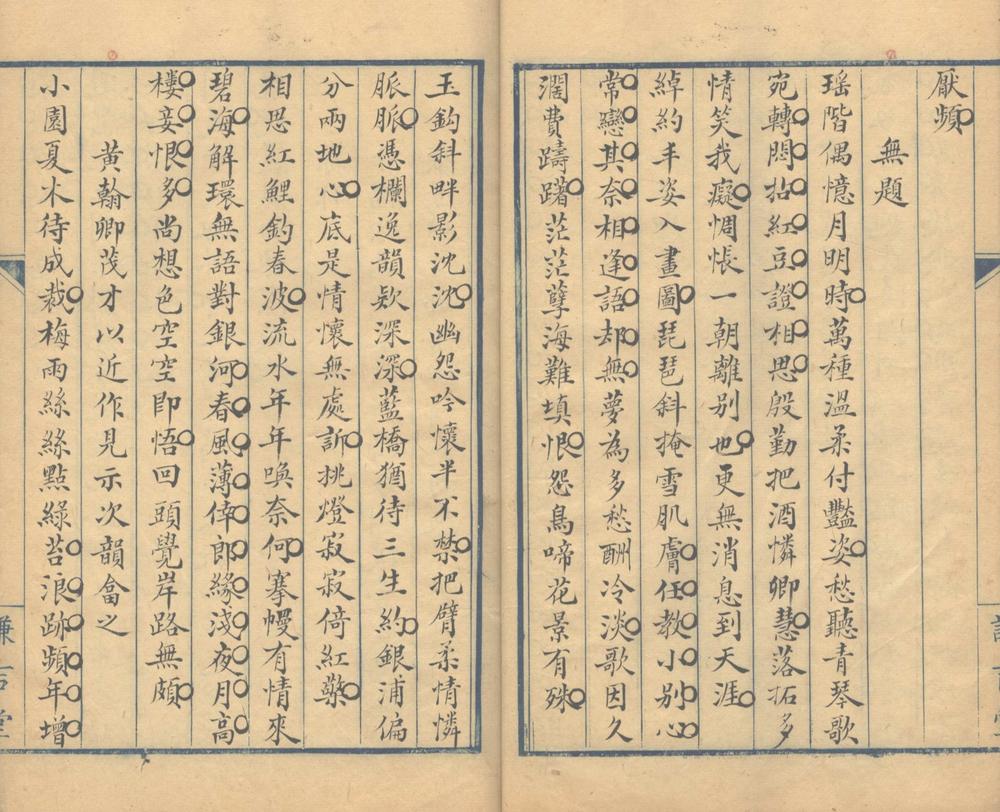 厭頻
無題
瑶階偶憶月明時萬種溫柔付豔姿愁聽青琴歌
宛轉悶拈紅豆證相思殷勤把酒憐卿慧落拓多
情笑我癡惆悵一朝離别也更無消息到天涯
綽約丰姿入畫圖琵琶斜掩雪肌膚任教小别心
常戀其奈相逢語却無夢為多愁酬冷淡歌因久
濶費躊躇茫茫孽海難填恨怨鳥啼花景有殊
玉鈎斜畔影沈沈幽怨吟懷半不禁把臂柔情憐
脈脈憑欄逸韻欵深深藍橋猶待三生約銀浦偏
分兩地心心底是情懷無處訴挑燈寂寂倚紅檠
相思紅鯉釣春波流水年年喚奈何搴幔有情來
碧海解環無語對銀河春風薄倖郎緣淺夜月高
樓妾恨多尚想色空空即悟回頭覺岸路無頗
黄翰卿茂才以近作見示次韻畣之
小園夏木待成栽梅雨絲絲點綠苔浪跡頻年增